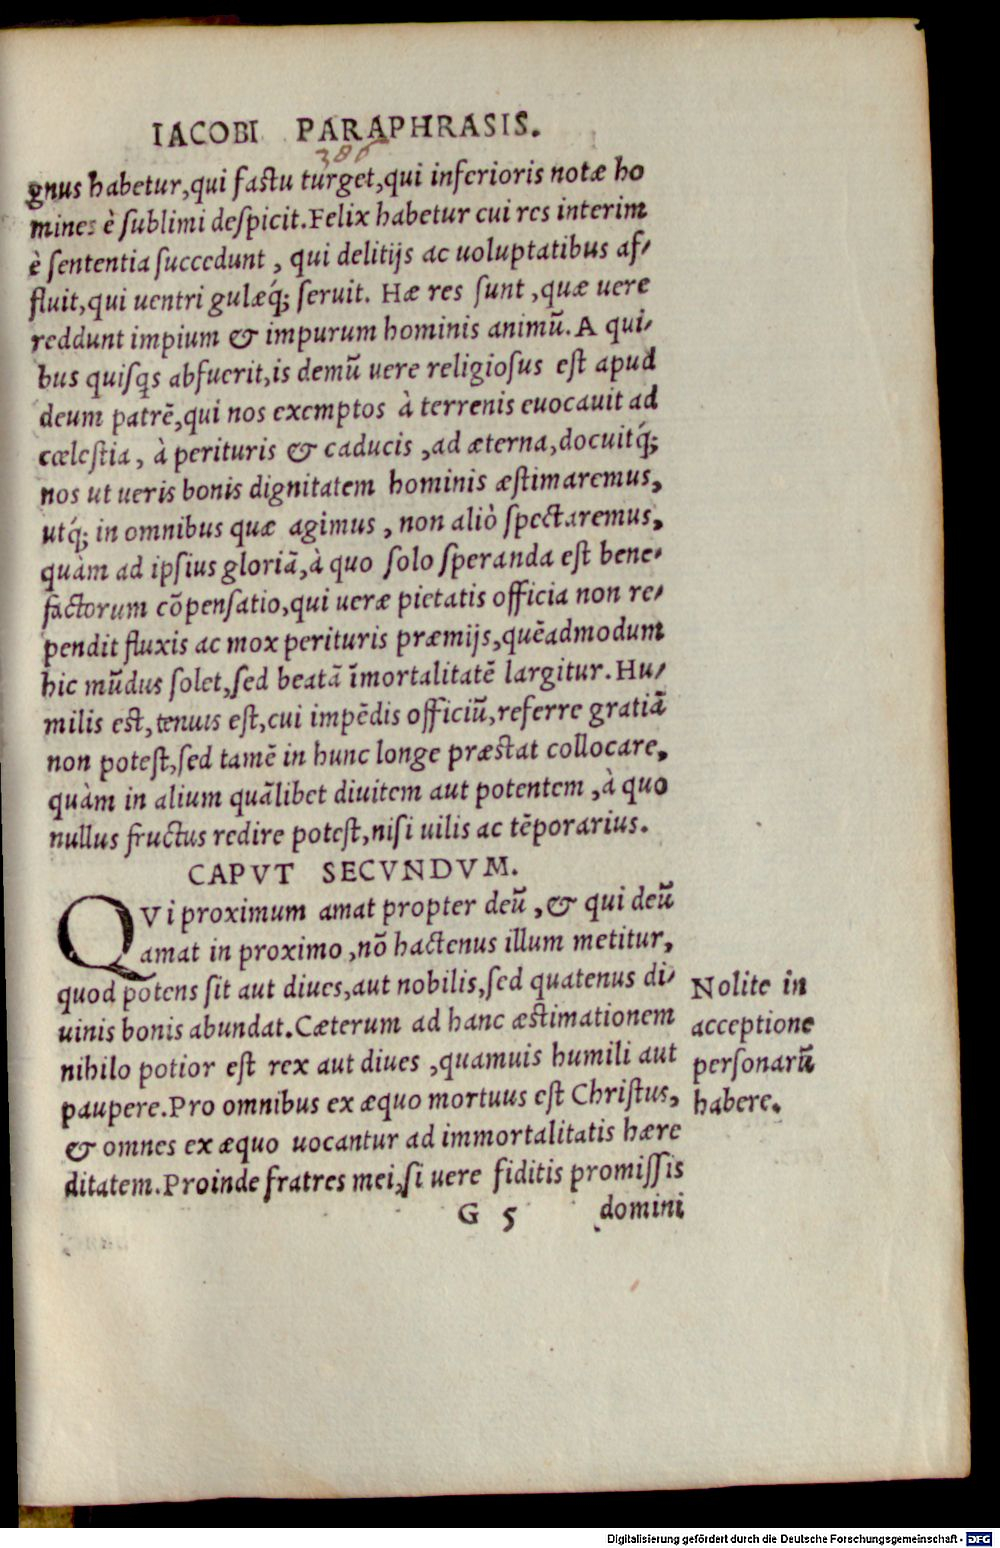 IACOBI PARAPHRASIS.
386
gnus habetur,qui fastu turget,qui inferioris notæ ho
mines è sublimi despicit.Felix habetur cui res interim
è sententia succedunt, qui delitijs ac uoluptatibus af-
fluit,qui uentri gulæq́; seruit. Hæ res sunt,quæ uere
reddunt impium & impurum hominis animũ.A qui-
bus quisqs abfuerit,is demũ uere religiosus est apud
deum patrẽ,qui nos exemptos à terrenis euocauit ad
cœlestia, à perituris & caducis,ad æterna,docuitq́;
nos ut ueris bonis dignitatem hominis æstimaremus,
utq́; in omnibus quæ agimus, non aliò spectaremus,
quàm ad ipsius gloriã,à quo solo speranda est bene-
factorum cõpensatio,qui ueræ pietatis officia non re-
pendit fluxis ac mox perituris præmijs,quẽadmodum
hic mũdus solet,sed beatã ĩmortalitatẽ largitur.Hu-
milis est,tenuis est,cui impẽdis officiũ,referre gratiã
non potest,sed tamẽ in hunc longe præstat collocare,
quàm in alium quãlibet diuitem aut potentem,à quo
nullus fructus redire potest,nisi uilis ac tẽporarius.
CAPVT SECVNDVM.
QVi proximum amat propter deũ,& qui deũ
amat in proximo,nõ hactenus illum metitur,
quod potens sit aut diues,aut nobilis,sed quatenus di-
uinis bonis abundat.Cæterum ad hanc æstimationem
nihilo potior est rex aut diues,quamuis humili aut
paupere.Pro omnibus ex æquo mortuus est Christus,
& omnes ex æquo uocantur ad immortalitatis hære
ditatem.Proinde fratres mei,si uere fiditis promissis
G 5 domini
Nolite in
acceptione
personarũ
habere.
Digitalisierung gefördert durch die Deutsche Forschungsgemeinschaft - DFG